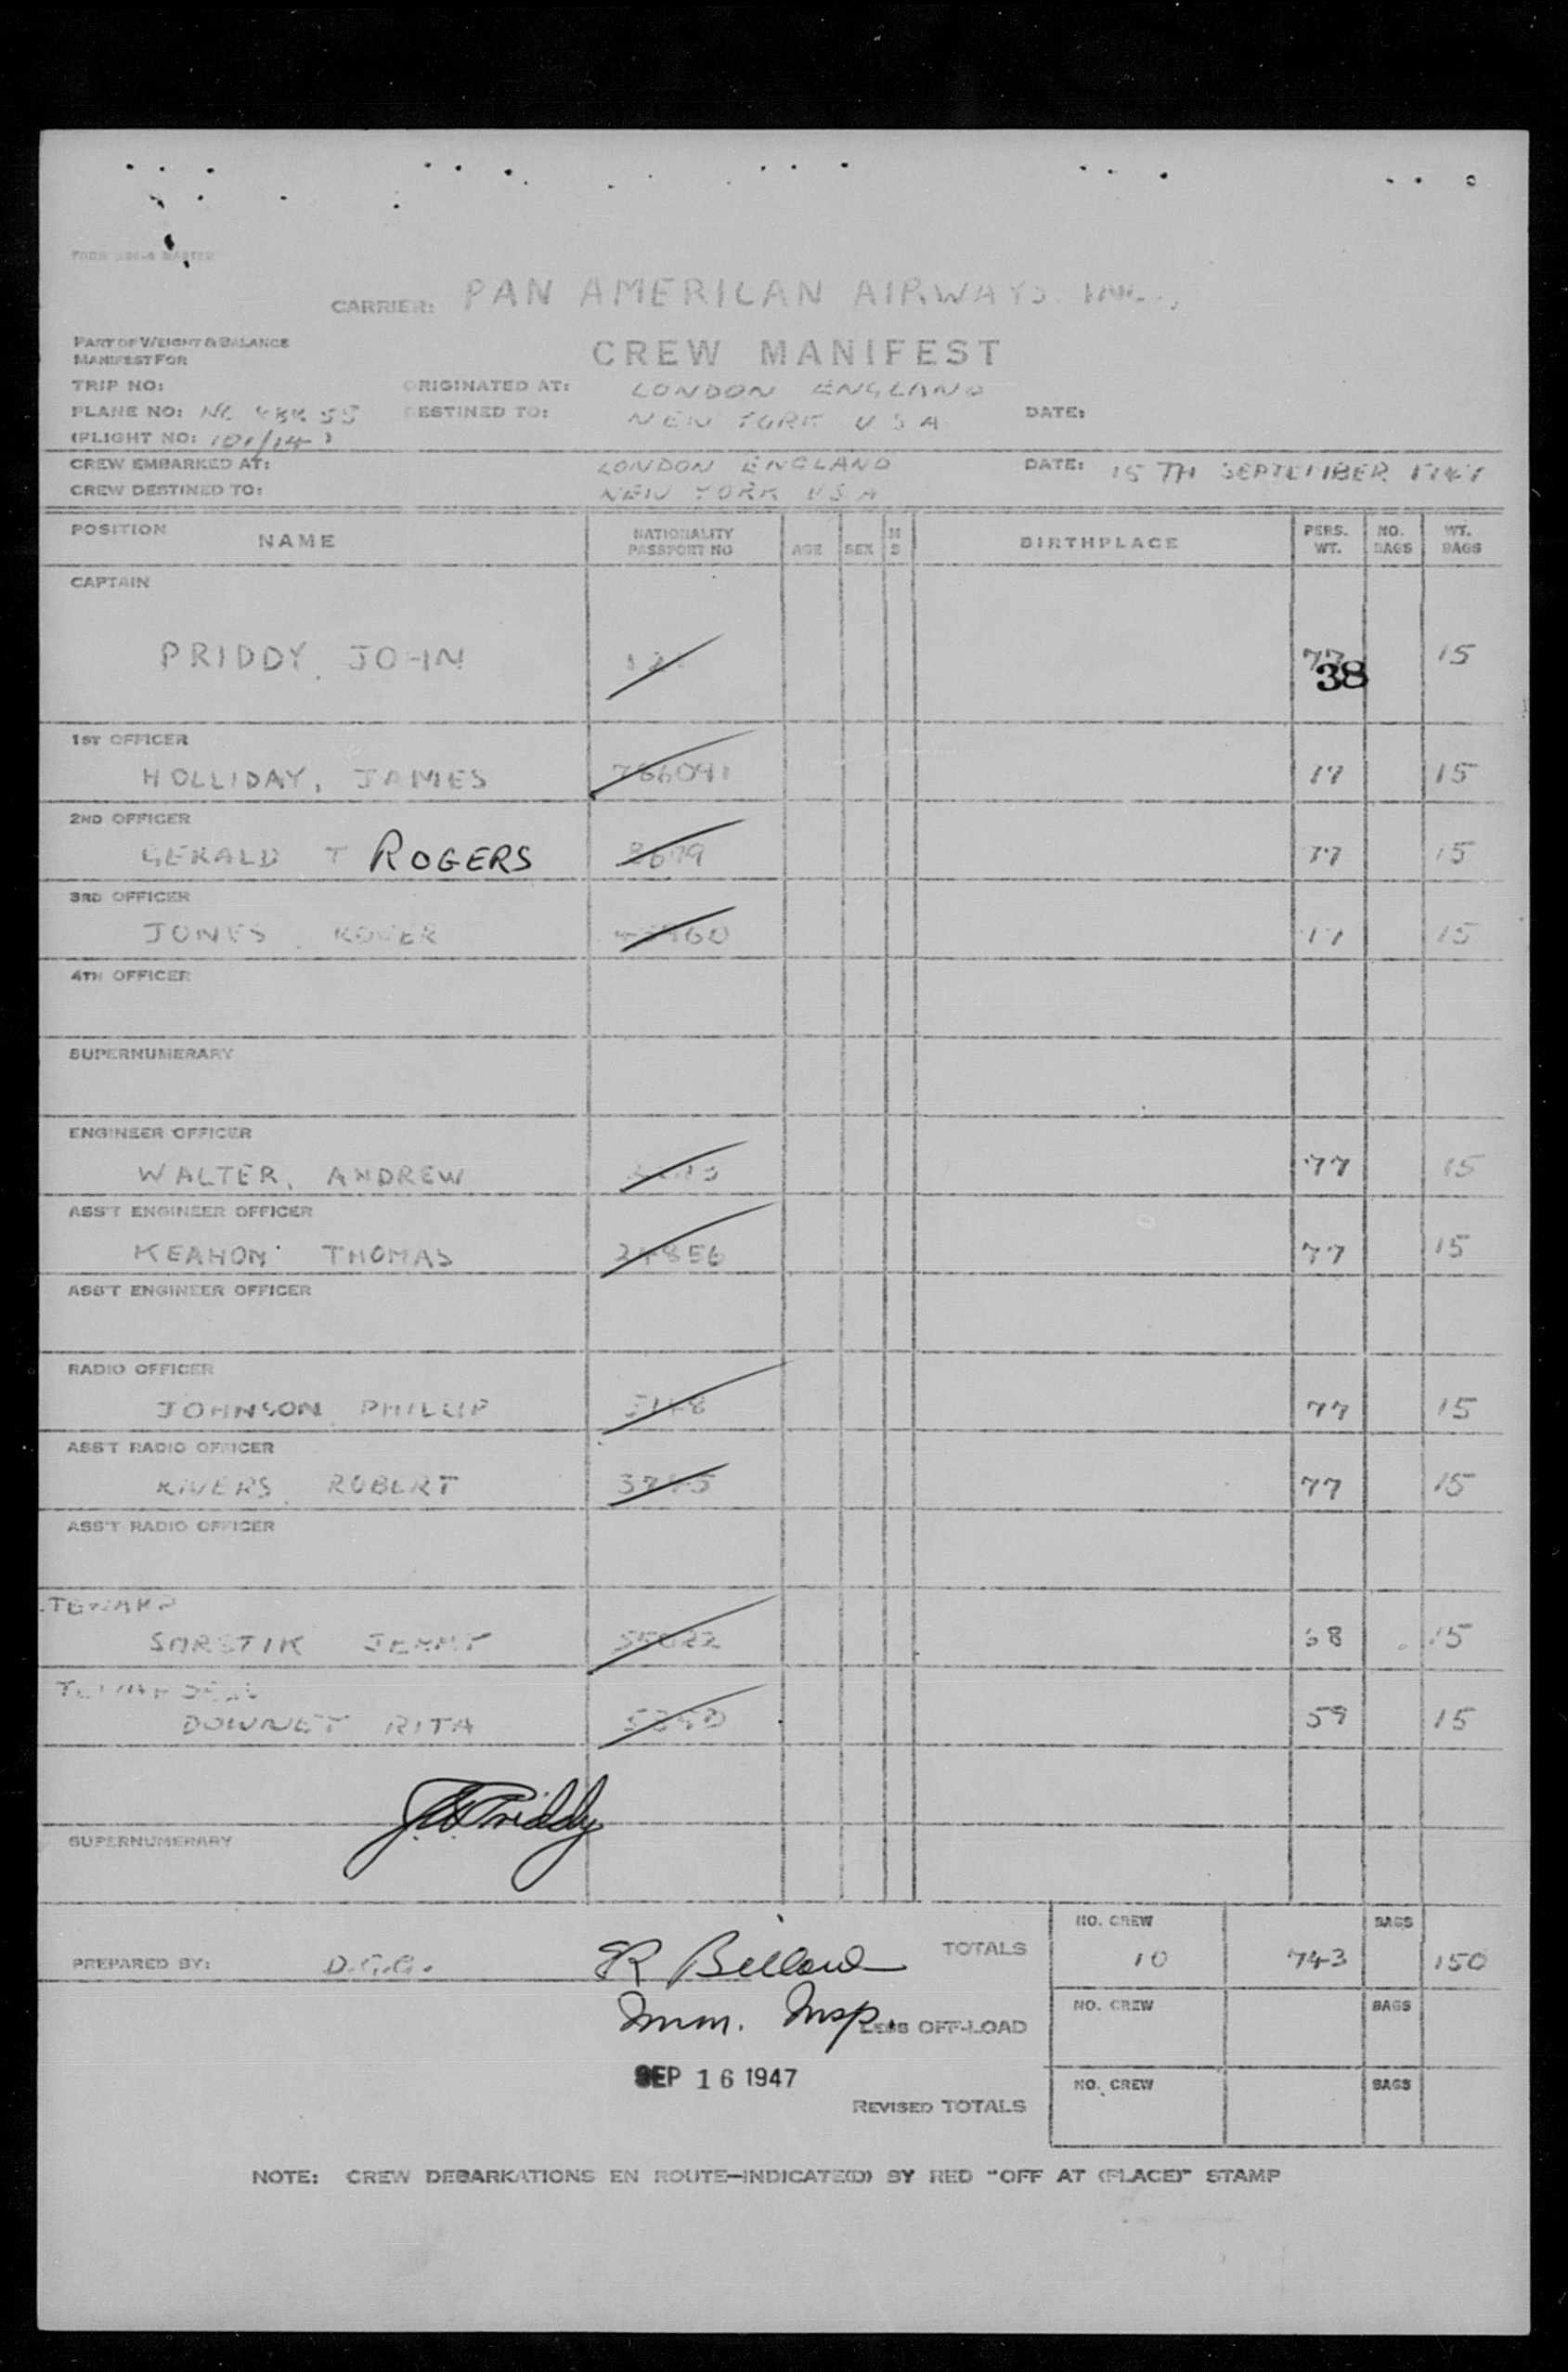 CARRIER: PAN AMERICAN AIRWAYS INC.,
PART OF WEIGHT & BALANCE
MANIFEST FOR
CREW MANIFEST
TRIP NO: ORIGINATED AT: LONDON ENGLAND
PLANE NO: NC 88855 DESTINED TO: NEW YORK USA DATE:
(FLIGHT NO: 101/14)
CREW EMBARKED AT: LONDON ENGLAND DATE: 15TH SEPTEMBER 1947
CREW DESTINED TO: NEW YORK USA
POSITION NAME NATIONALITY PASSPORT NO AGE SEX M S BIRTHPLACE PERS. WT. NO. BAGS WT. BAGS
CAPTAIN
PRIDDY, JOHN 77 15
38
1ST OFFICER
HOLLIDAY, JAMES 786091 77 15
2ND OFFICER
GERALD T ROGERS 8679 77 15
3RD OFFICER
JONES, ROGER 77 15
4TH OFFICER
SUPERNUMERARY
ENGINEER OFFICER
WALTER, ANDREW 77 15
ASS'T ENGINEER OFFICER
KEAHON THOMAS 24856 77 15
ASS'T ENGINEER OFFICER
RADIO OFFICER
JOHNSON, PHILLIP 77 15
ASS'T RADIO OFFICER
RIVERS, ROBERT 77 15
ASS'T RADIO OFFICER
TEWARD
68 15
DOWNEY RITA 59 15
J.W. Priddy
SUPERNUMERARY
NO. CREW BAGS
PREPARED BY: D.G.G. TOTALS 10 743 150
Imm. Insp.
NO. CREW BAGS
LESS OFF-LOAD
SEP 16 1947
NO. CREW BAGS
REVISED TOTALS
NOTE: CREW DEBARKATIONS EN ROUTE—INDICATE(D) BY RED "OFF AT (PLACE)" STAMP